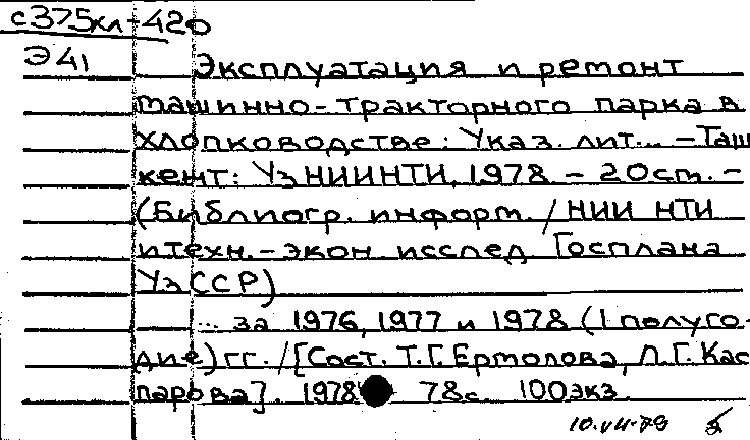 с375кл-420
Э41
Эксплуатация и ремонт
машинно-тракторного парка в
хлопководстве: Указ. лит... - Таш
кент: УзНИИНТИ, 1978 - 20см. -
(Библиогр. информ. / НИИ НТИ
и техн.-экон исслед Госплана
УзССР)
... за 1976, 1977 и 1978 (1 полуго-
дие) гг. / [Сост. Т.Г. Ермолова, Л.Г. Кас
парова]. 1978 78с. 100экз.
10.VII-79